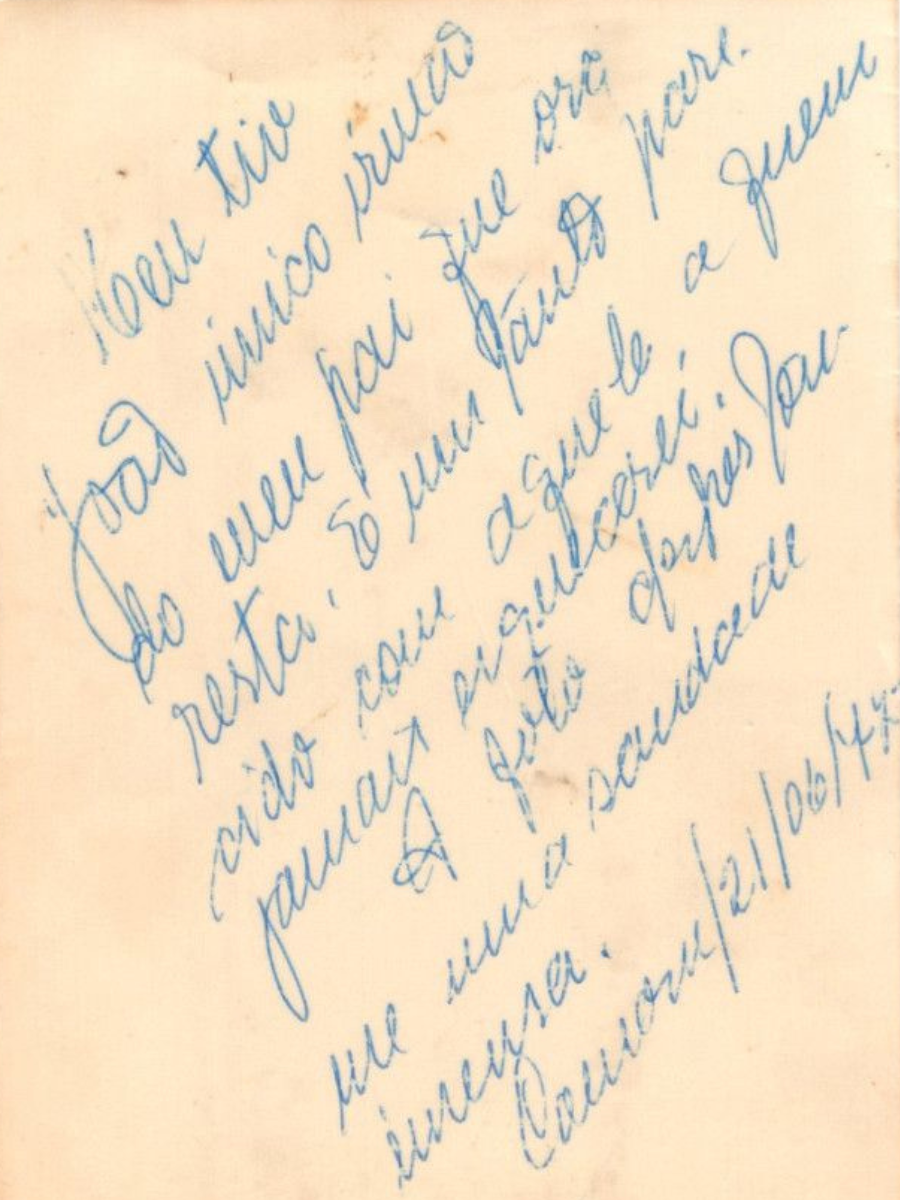 Meu tio
João único irmão
do meu pai que ora
resta. É um tanto pare-
cido com aquele a quem
jamais esquecerei.
A foto despertou-
me uma saudade
imensa.
21/06/47